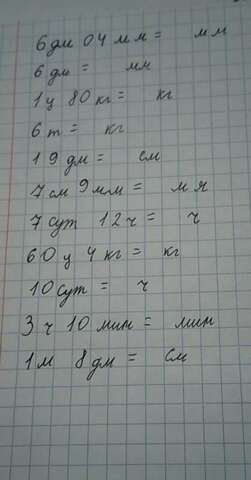 6 дм 04 мм = мм
6 дм = мм
1 ц 80 кг = кг
6 т = кг
19 дм = см
7 см 9 мм = мм
7 сут 12 ч = ч
60 ц 4 кг = кг
10 сут = ч
3 ч 10 мин = мин
1 м 8 дм = см